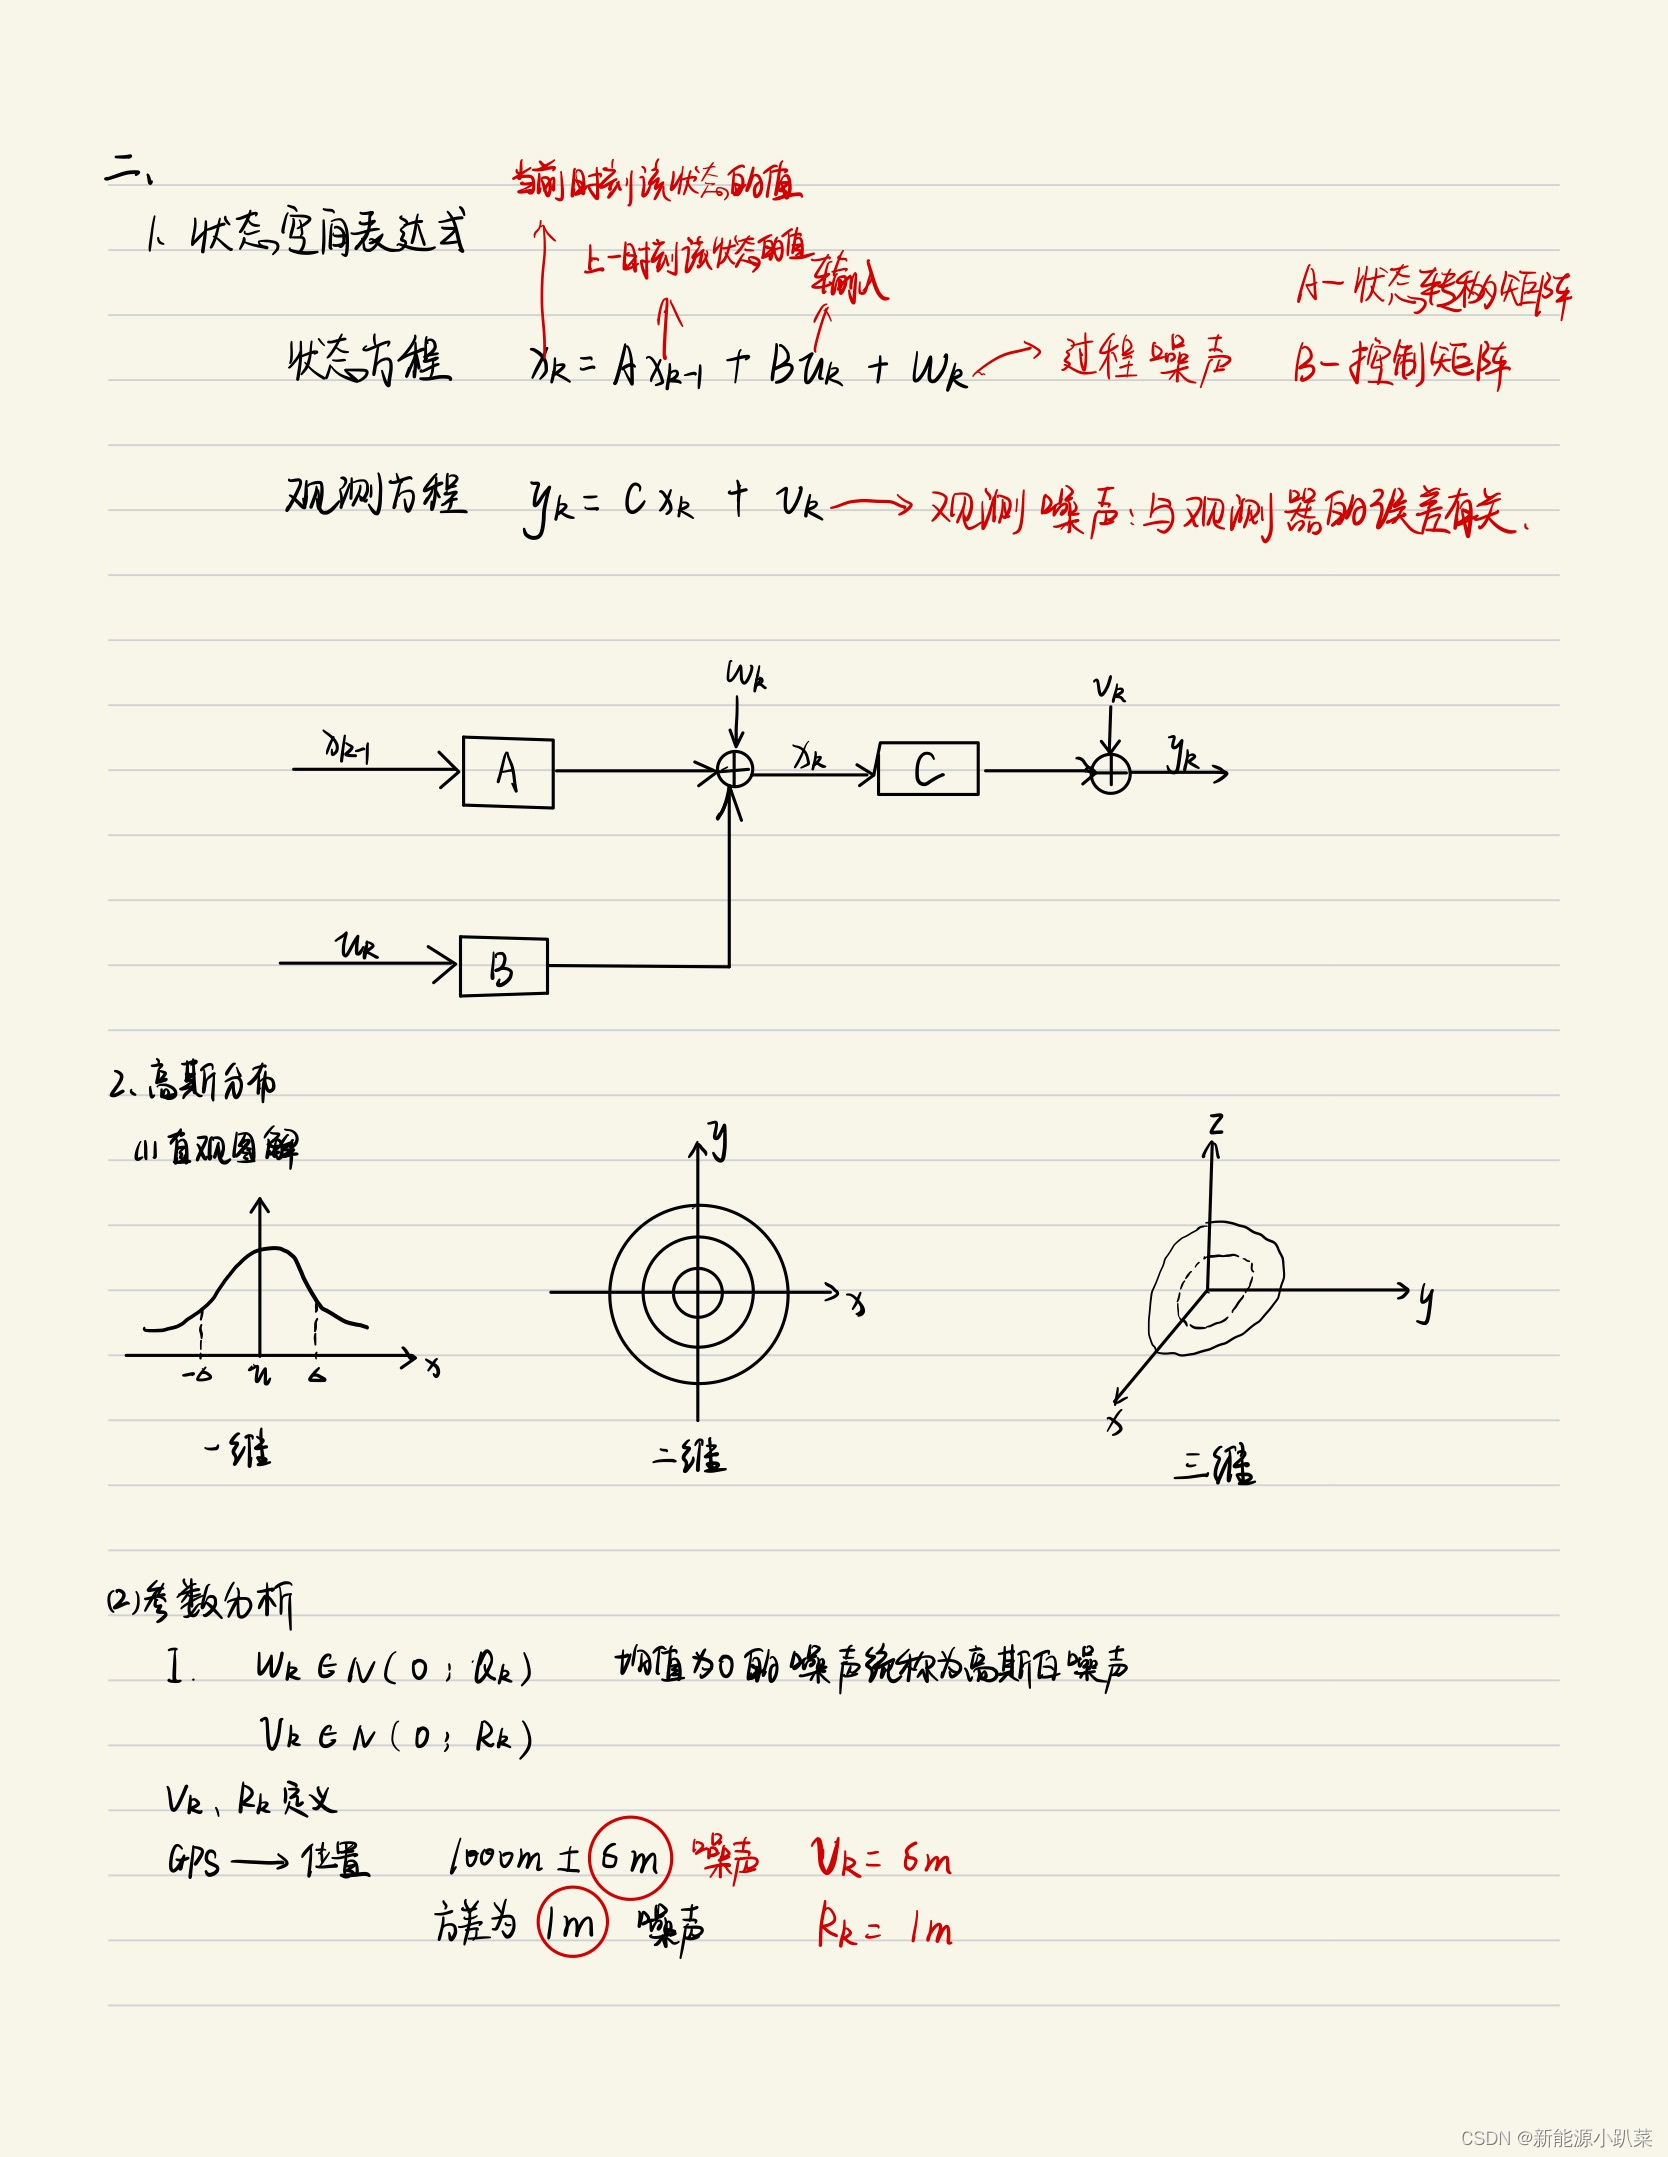 二、
当前时刻该状态的值
1、状态空间表达式
上一时刻该状态的值
输入
A－状态转移的矩阵
状态方程 xₖ = Axₖ₋₁ + Buₖ + Wₖ 过程噪声 B－控制矩阵
观测方程 yₖ = Cxₖ + vₖ 观测噪声：与观测器的误差有关.
Wₖ
vₖ
xₖ₋₁ A xₖ C yₖ
uₖ B
2、高斯分布
(1) 直观图解
y
z
x
y
-σ u σ x
x
一维 二维 三维
(2)参数分析
I. Wₖ ∈ N(0; Qₖ) 均值为0的噪声统称为高斯白噪声
Vₖ ∈ N(0; Rₖ)
Vₖ、Rₖ定义
GPS → 位置 1000m ± 6m 噪声 Vₖ = 6m
方差为 1m 噪声 Rₖ = 1m
CSDN @新能源小趴菜